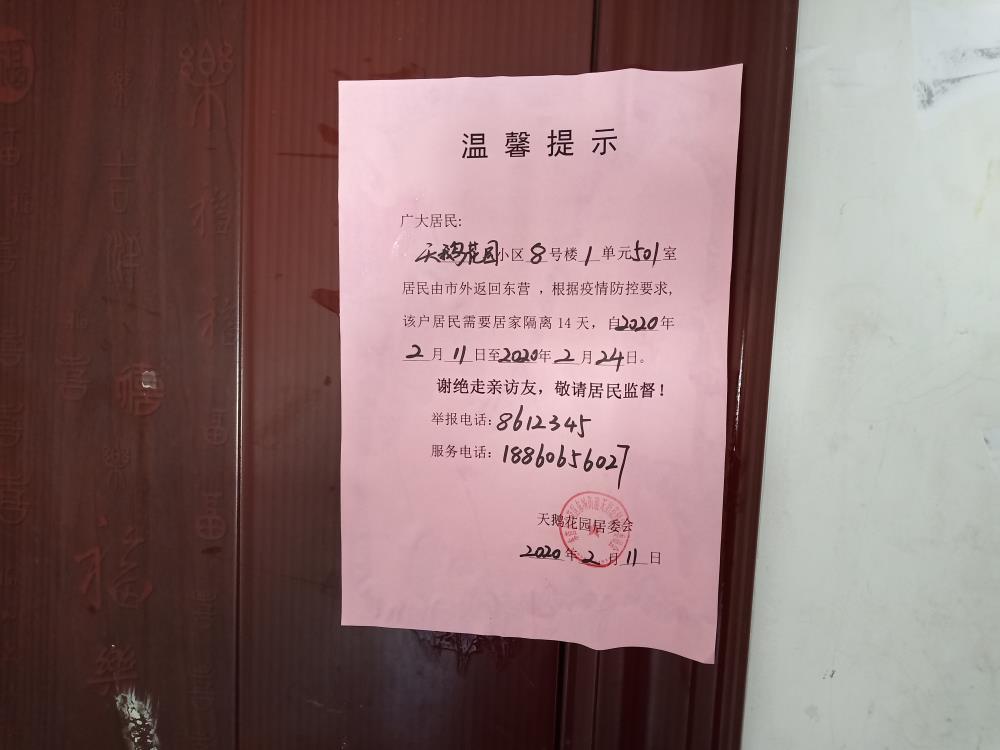 温馨提示
广大居民:
天鹅花园小区8号楼1单元501室
居民由市外返回东营，根据疫情防控要求,
该户居民需要居家隔离14天，自2020年
2月11日至2020年2月24日。
谢绝走亲访友，敬请居民监督！
举报电话：8612345
服务电话：18860656027
天鹅花园居委会
2020年2月11日
福
樂